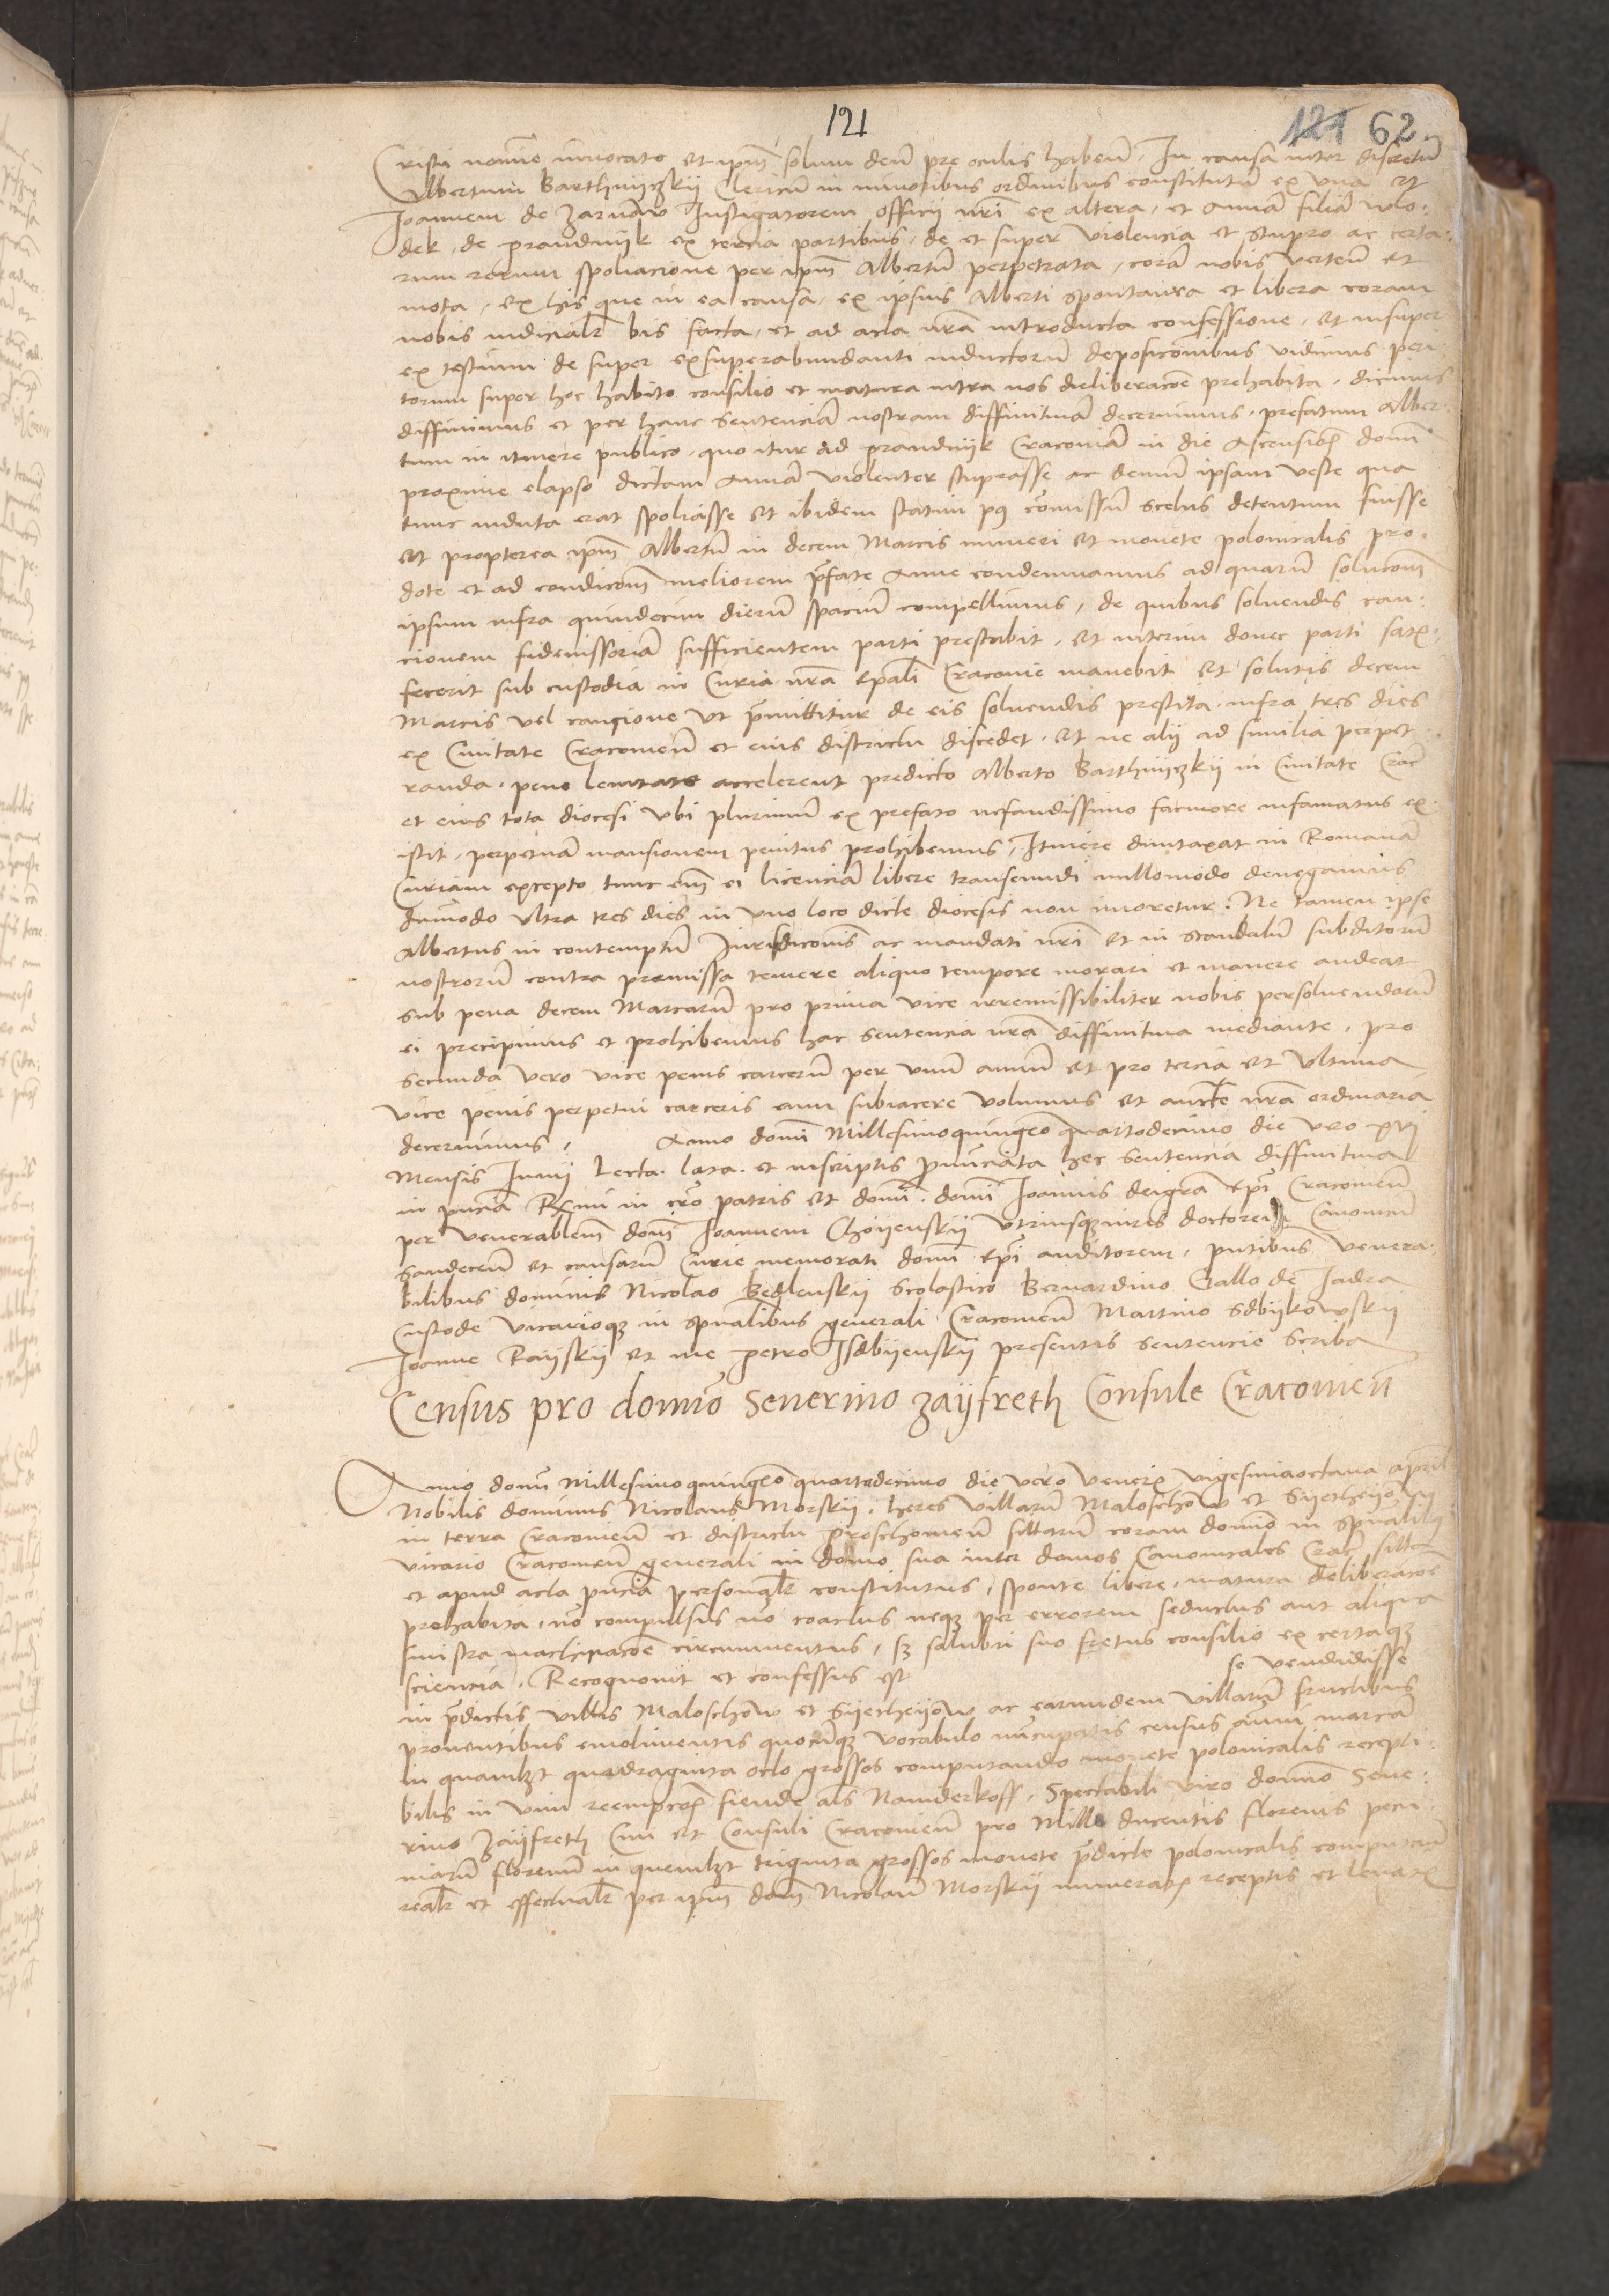 121
121 62
Cristi nomine invocato et ipm̄ solum deū pre oculis habeñ. In causa inter discretū
Albertum Barthnyczkÿ Clericū in minoribus ordinibus constitutū ex vna et
Joannem de Zarnaw Instigatorem officij nrī ex altera, et Annā filiā wlo-
dek, de prandnijk ex tercia partibus, de et super violencia et stupro ac certa-
rum rerum spoliacione per ipm̄ Albertū perpetrata, corā nobis verteñ et
mota, ex his que in ea causa, ex ipsius Alberti spontanea et libera coram
nobis iudicialr bis facta, et ad acta nrā introducta confessione, et insuper
ex testium de super exsuperabundanti inductorū deposicōnibus vidimus peri-
torum super hoc habito consilio et matura intra nos deliberacōe prehabita, dicimus
diffinimus et per hanc sentenciā nostram diffinitiuā decernimus, prefatum Alber-
tum in itinere publico, quo itur ad prandnijk Cracoviā in die Ascensiōis domī
proxime elapso dictam Annā violenter stuprasse ac demū ipsam veste qua
tunc induta erat spoliasse et ibidem statim pꝰ cōmissū scelus detentum fuisse
et propterea ipm̄ Albertū in decem Marcis numeri et monete polonicalis pro
dote et ad condicōnē meliorem p̄fate Anne condemnamus ad quarū solucōnē
ipsum infra quindecim dierū spaciū compellimus, de quibus soluendis cau-
cionem fideiussoriā sufficientem parti prestabit, et interim donec parti satis-
fecerit sub custodia in Curia nrā Epalī Cracovie manebit et solutis decem
Marcis vel caucione vt p̄mittitur de eis soluendis prestita infra tres dies
ex Ciuitate Cracovieñ et eius districtu discedet. et ne alij ad similia perpet-
randa, pene lenitate accelerent predicto Alberto Barthnyczkÿ in Ciuitate Crac̄
et eius tota diocesi vbi plurimū ex prefato nefandissimo facinore infamatus ex-
istit, perpetuā mansionem penitus prohibemus, Itinere duntaxat in Romanā
Curiam excepto tunc em̄ ei licenciā libere transeundi nullomodo denegamus
dummodo vltra tres dies in vno loco dicte diocesis non moretur. Ne tamen ipse
Albertus in contemptū Jurisdicōnis ac mandati nrī et in scandalū subditorū
nostrorū contra premissa temere aliquo tempore morari et manere audeat
sub pena decem Marcarū pro prima vice irremissibiliter nobis persoluendarū
ei precipimus et prohibemus hac sentencia nrā diffinitiua mediante, pro
secunda vero vice penis carcerū per vnū annū et pro tercia et vltima
vice penis perpetui carceris eum subiacere volumus et auctte nrā ordinaria
decernimus, Anno domī Millesimoquingēo quartodecimo die vero xvi
Mensis Junij Lecta. lata. et inscriptis p̄nūciata hec sentencia diffinitiua
in pn̄cia Rm̄i in cr̄o patris et domī. domī Joannis deigrā Epī Cracovieñ
per venerabilem domī Joannem Choÿenskÿ vtriusqꝫ iuris doctorem Canonicū
sandecieñ et causarū Curie memorati domī Epī auditorem, pn̄tibus venera-
bilibus dominis Nicolao Bedlenskÿ Scolastico Bernardino Gallo de Jadra
Custode vicarioqꝫ in spūalibus generali Cracovieñ Martino Sdbÿkowskÿ
Joanne Raÿskÿ et me Petro Jsdbÿenskÿ presentis sentencie scriba
Census pro domīo Seuerino Zaÿfreth Consule Cracovieñ
Anno domī Millesimoquingēo quartodecimo die vero veneris vigesimaoctaua april
Nobilis dominus Nicolaus Morskÿ, heres villarū Maloschow et Sÿetheÿow
in terra Cracovieñ et districtu proschovieñ sittarū coram domīo in spūalibꝰ
vicario Cracovieñ generali in domo sua inter domos Canonicales Crac̄ sitta
et apud acta pn̄cia personalr constitutus, sponte libere, matura deliberacōe
prehabita, nō compulsus nō coactus neqꝫ per errorem seductus aut aliqua
sinistra machinacōe circumuentus, sꝫ salubri suo fretus consilio ex certaqꝫ
sciencia, Recognouit et confessus est se vendidisse
in p̄dictis villis Maloschow et Sÿetheÿow ac earundem villarū fructibus
prouentibus emolimentis quocūqꝫ vocabulo nūcupatis census annui marcā
in quamlꝫt quadraginta octo grossos computando monete polonicalis recepti-
bilis in vim reempcōis fiende als Namderkoff, Spectabili viro domīno Seue-
rino Zaÿfreth Ciui et Consuli Cracovieñ pro Mille ducentis florenis pecu-
niarū florenū in quemlꝫt triginta grossos monete p̄dicte polonicalis computañ
realr et effectualr per ipm̄ dom̄ Nicolaū Morskÿ numeratis receptis et leuatis